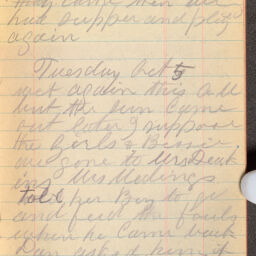 they came then we
had supper and
again
Tuesday Oct 5
wet again this A.M
but the sun came
out later I suppose
the Girls & Bessie
are gone to Mrs Deak
ins Mrs
told her Boy to go
and feed the fouls
when he came back
Dan asked him if